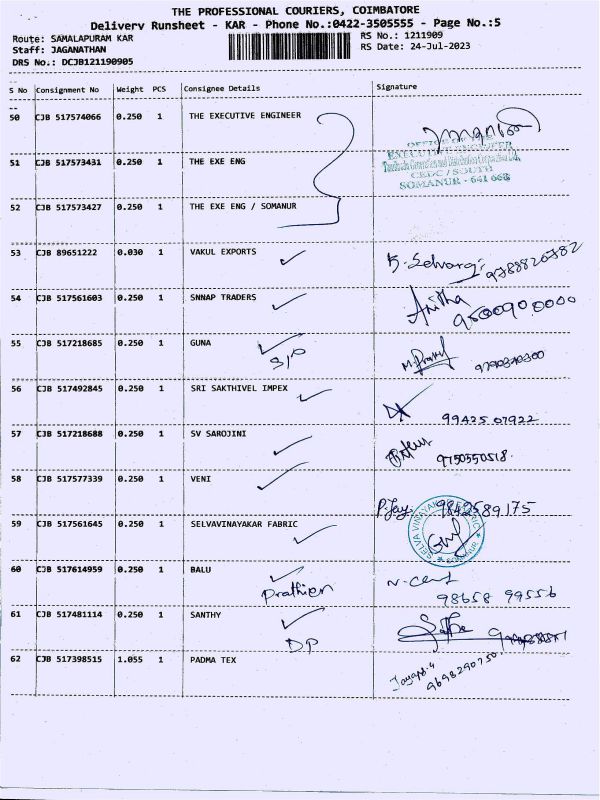 THE PROFESSIONAL COURIERS, COIMBATORE
Delivery Runsheet - KAR - Phone No.:0422-3505555 - Page No.:5
Route: SAMALAPURAM KAR RS No.: 1211909
Staff: JAGANATHAN RS Date: 24-Jul-2023
DRS No.: DCJB121190905
S No Consignment No Weight PCS Consignee Details Signature
50 CJB 517574066 0.250 1 THE EXECUTIVE ENGINEER
OFFICE OF THE
EXECUTIVE ENGINEER
51 CJB 517573431 0.250 1 THE EXE ENG
CEDC / SOUTH
SOMANUR - 641 668
52 CJB 517573427 0.250 1 THE EXE ENG / SOMANUR
53 CJB 89651222 0.030 1 VAKUL EXPORTS
54 CJB 517561603 0.250 1 SNNAP TRADERS Anitha
55 CJB 517218685 0.250 1 GUNA
S/O
56 CJB 517492845 0.250 1 SRI SAKTHIVEL IMPEX
99425 07922
57 CJB 517218688 0.250 1 SV SAROJINI
9750550518.
58 CJB 517577339 0.250 1 VENI
P.Jay 9842589175
59 CJB 517561645 0.250 1 SELVAVINAYAKAR FABRIC
SELVA VINAYAKAR FABRIC
SOMANUR
60 CJB 517614959 0.250 1 BALU
98658 99556
61 CJB 517481114 0.250 1 SANTHY
DP
62 CJB 517398515 1.055 1 PADMA TEX
9698290750